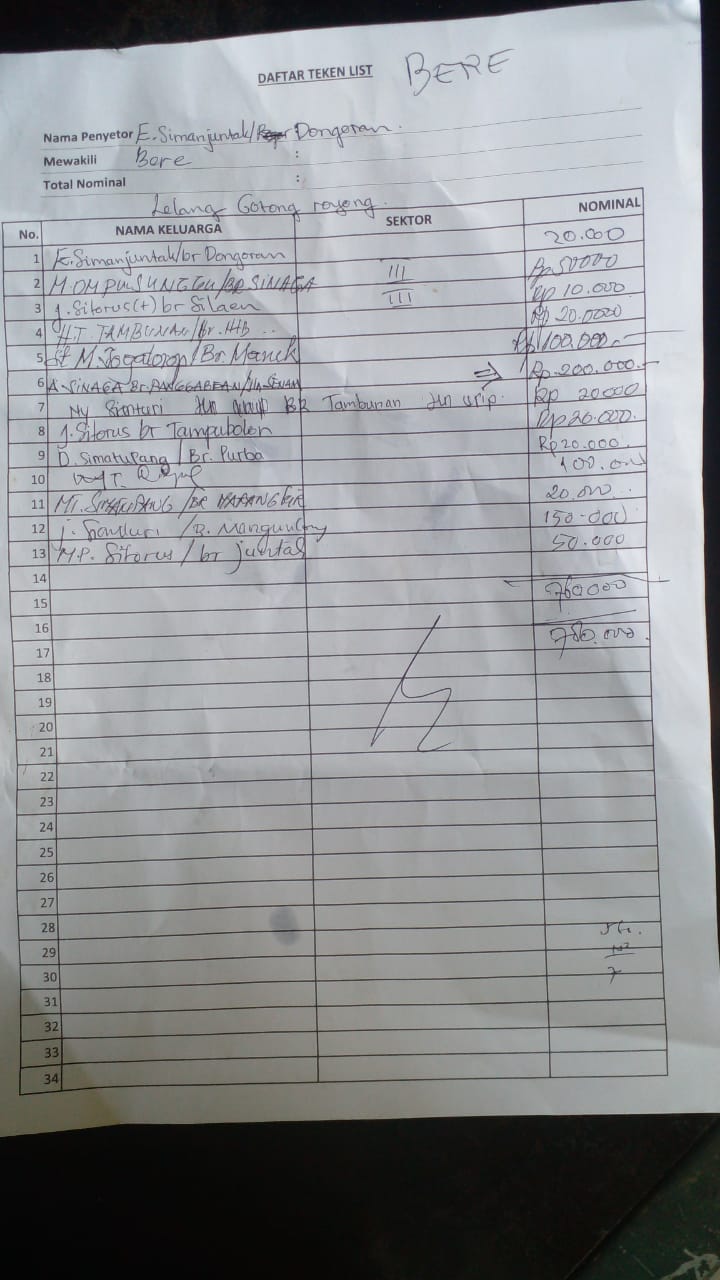 DAFTAR TEKEN LIST BERE
Nama Penyetor E. Simanjuntak/ Dongoran.
Mewakili Bere :
Total Nominal :
Lelang Gotong royong
No. NAMA KELUARGA SEKTOR NOMINAL
1 E. Simanjuntak/br Dongoran 20.000
2 M. OMPUSUNGGU/BR SINAGA III Rp 50000
3 J. Sitorus (+) br Silaen III Rp 10.000
4 HT TAMBUNAN/Br. Rp 20.0000
5 St M. Togatorop/Br Manck Rp 100.000.-
6 A. SINAGA Br PANGGABEAN/ Rp 200.000.-
7 Ny Sianturi BR Tambunan Rp 20000
8 J. Sitorus br Tampubolon Rp 20.000.
9 D. Simatupang / Br. Purba Rp 20.000.
10 100.000
11 MT. SIMATUPANG /BR 20.000
12 J. Sianturi / 150-000
13 M.P. Sitorus / br juntal 50.000
14
15 760000
16
17 780.000.
18
19
20
21
22
23
24
25
26
27
28
29
30
31
32
33
34